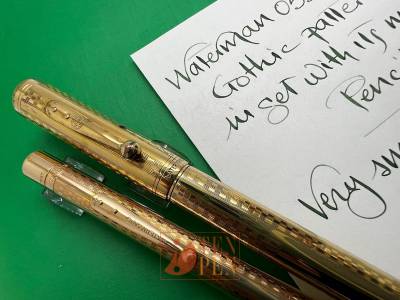 Waterman 05
Gothic patte
in set with its m
Pencil
Very sm
PEN
PEN